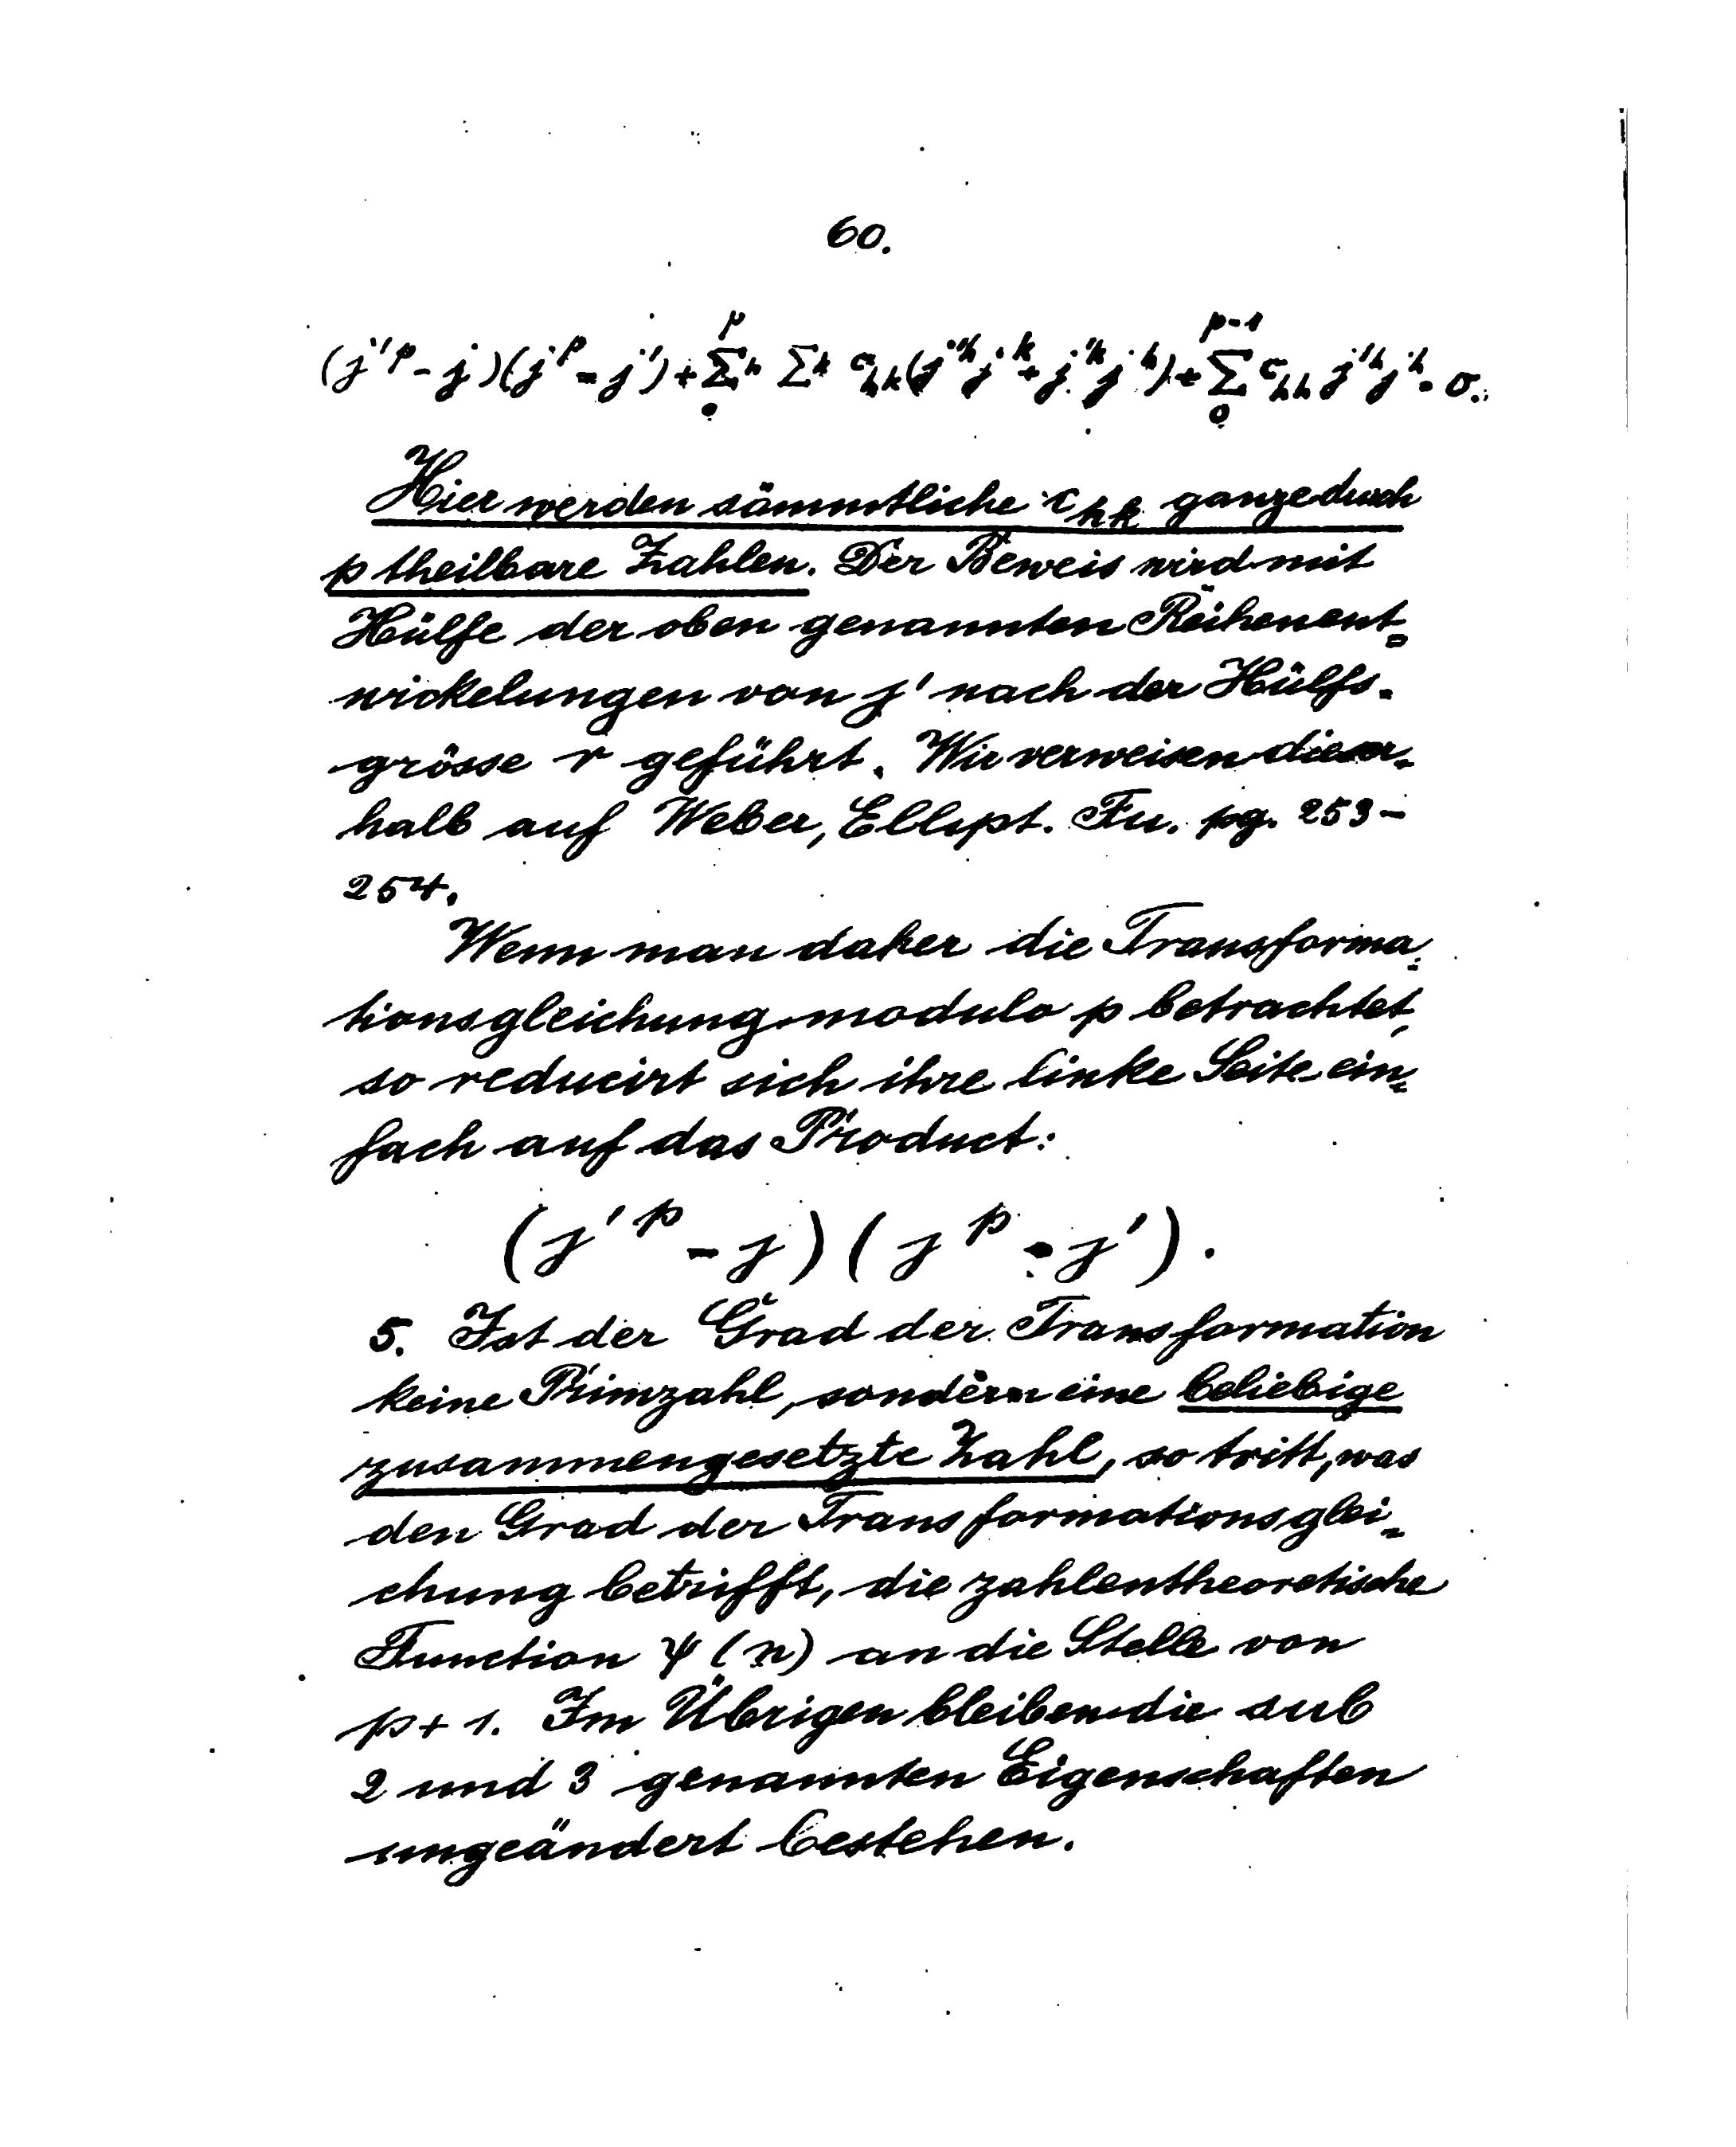 60.
(j'^p - j)(j^p - j') + Σ_0^p h Σ k c_hk (j'^h j^k + j'^k j^h) + Σ_0^{p-1} c_hh j'^h j^h = 0.
Hier werden sämmtliche c_hk ganze durch
p theilbare Zahlen. Der Beweis wird mit
Hülfe der oben genannten Reihenent-
wickelungen von j' nach der Hülfs-
grösse r geführt. Wir verweisen dieser-
halb auf Weber, Ellipt. Fu. pg. 253-
254.
Wenn man daher die Transforma-
tionsgleichung modulo p betrachtet,
so reducirt sich ihre linke Seite ein-
fach auf das Product:
(j'^p - j)(j^p - j').
5. Ist der Grad der Transformation
keine Primzahl, sondern eine beliebige
zusammengesetzte Zahl, so tritt, was
den Grad der Transformationsglei-
chung betrifft, die zahlentheoretische
Function ψ(n) an die Stelle von
p+1. Im Übrigen bleiben die sub
2 und 3 genannten Eigenschaften
ungeändert bestehen.